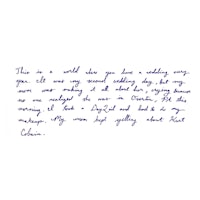 This is a world where you have a wedding every
year. It was my second wedding day, but my
mom was making it all about her, crying because
no one realized she was in Overtime, Pt this
morning. I took a and had to in my
makeup. My mom kept yelling about Kurt
Cobain.